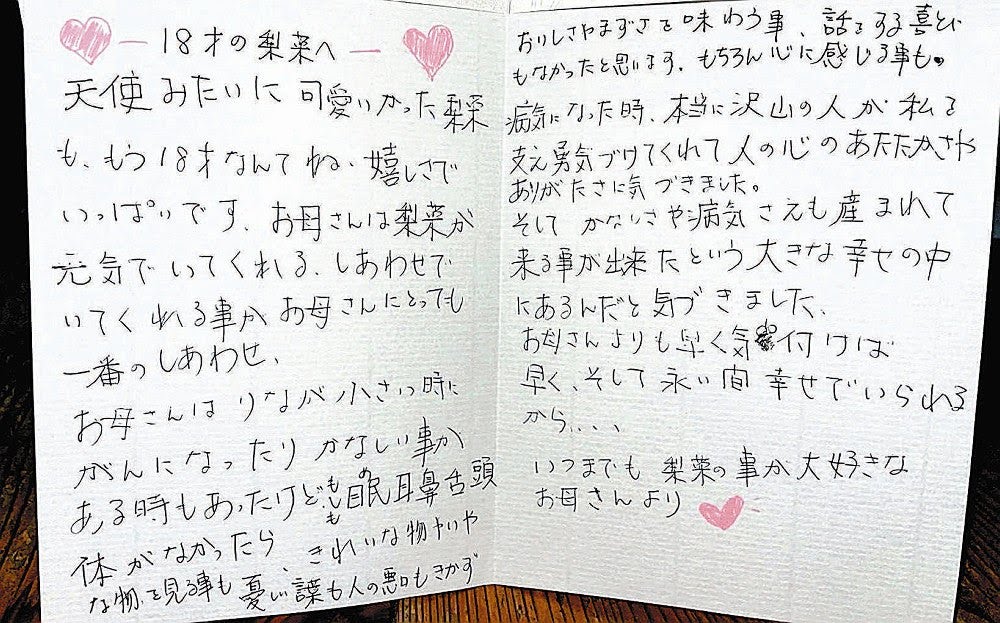 18才の梨菜へ
天使みたいに可愛いかった梨菜
も、もう18才なんてね、嬉しさで
いっぱいです、お母さんは梨菜が
元気でいてくれる、しあわせで
いてくれる事がお母さんにとっても
一番のしあわせ、
お母さんはりなが小さい時に
がんになったりかなしい事が
ある時もあったけど、もしも眼耳鼻舌頭
め
体がなかったら、きれいな物やいや
な物を見る事も憂い葉も人の悪口もきかず
おいしさやまずさを味わう事、話をする喜びも
もなかったと思います、もちろん心に感じる事も。
病気になった時、本当に沢山の人が私を
支え勇気づけてくれて人の心のあたたかさや
ありがたさに気づきました。
そしてかなしさや病気さえも産まれて
来る事が出来たという大きな幸せの中
にあるんだと気づきました、
お母さんよりも早く気付けば
早く、そして永い間幸せでいられる
から、、、、
いつまでも梨菜の事が大好きな
お母さんより